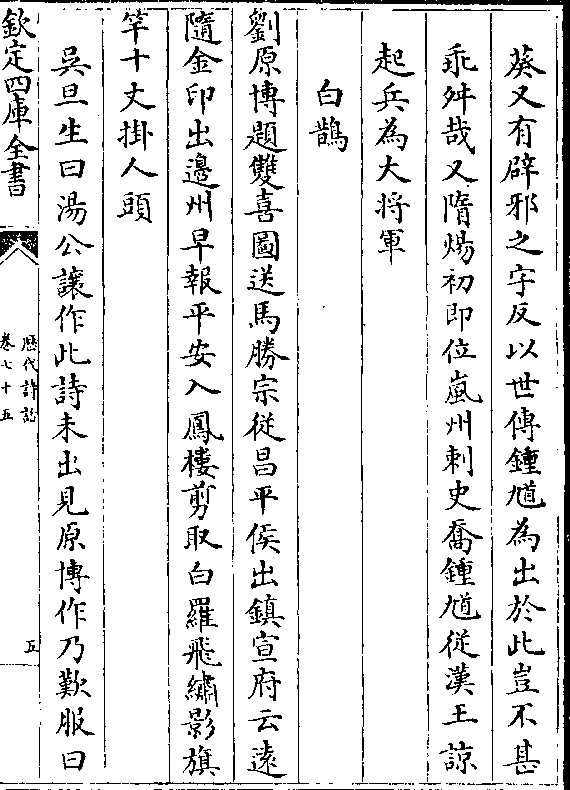 葵又有辟邪之字反以世傳鍾馗為出於此豈不甚
乖舛哉又隋煬初即位嵐州刺史喬鍾馗從漢王諒
起兵為大將軍
白鵲
劉原博題雙喜圖送馬勝宗從昌平侯出鎮宣府云遠
隨金印出邊州早報平安入鳳樓剪取白羅飛繡影旗
竿十丈掛人頭
吳旦生曰湯公讓作此詩未出見原博作乃歎服曰
欽定四庫全書
歷代詩話
卷七十五
五